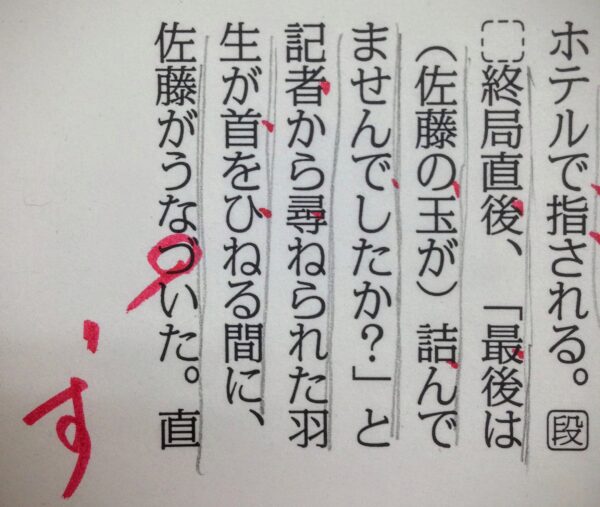 ホテルで指される。段
終局直後、「最後は
（佐藤の玉が）詰んで
ませんでしたか？」と
記者から尋ねられた羽
生が首をひねる間に、
佐藤がうなづいた。直
ず